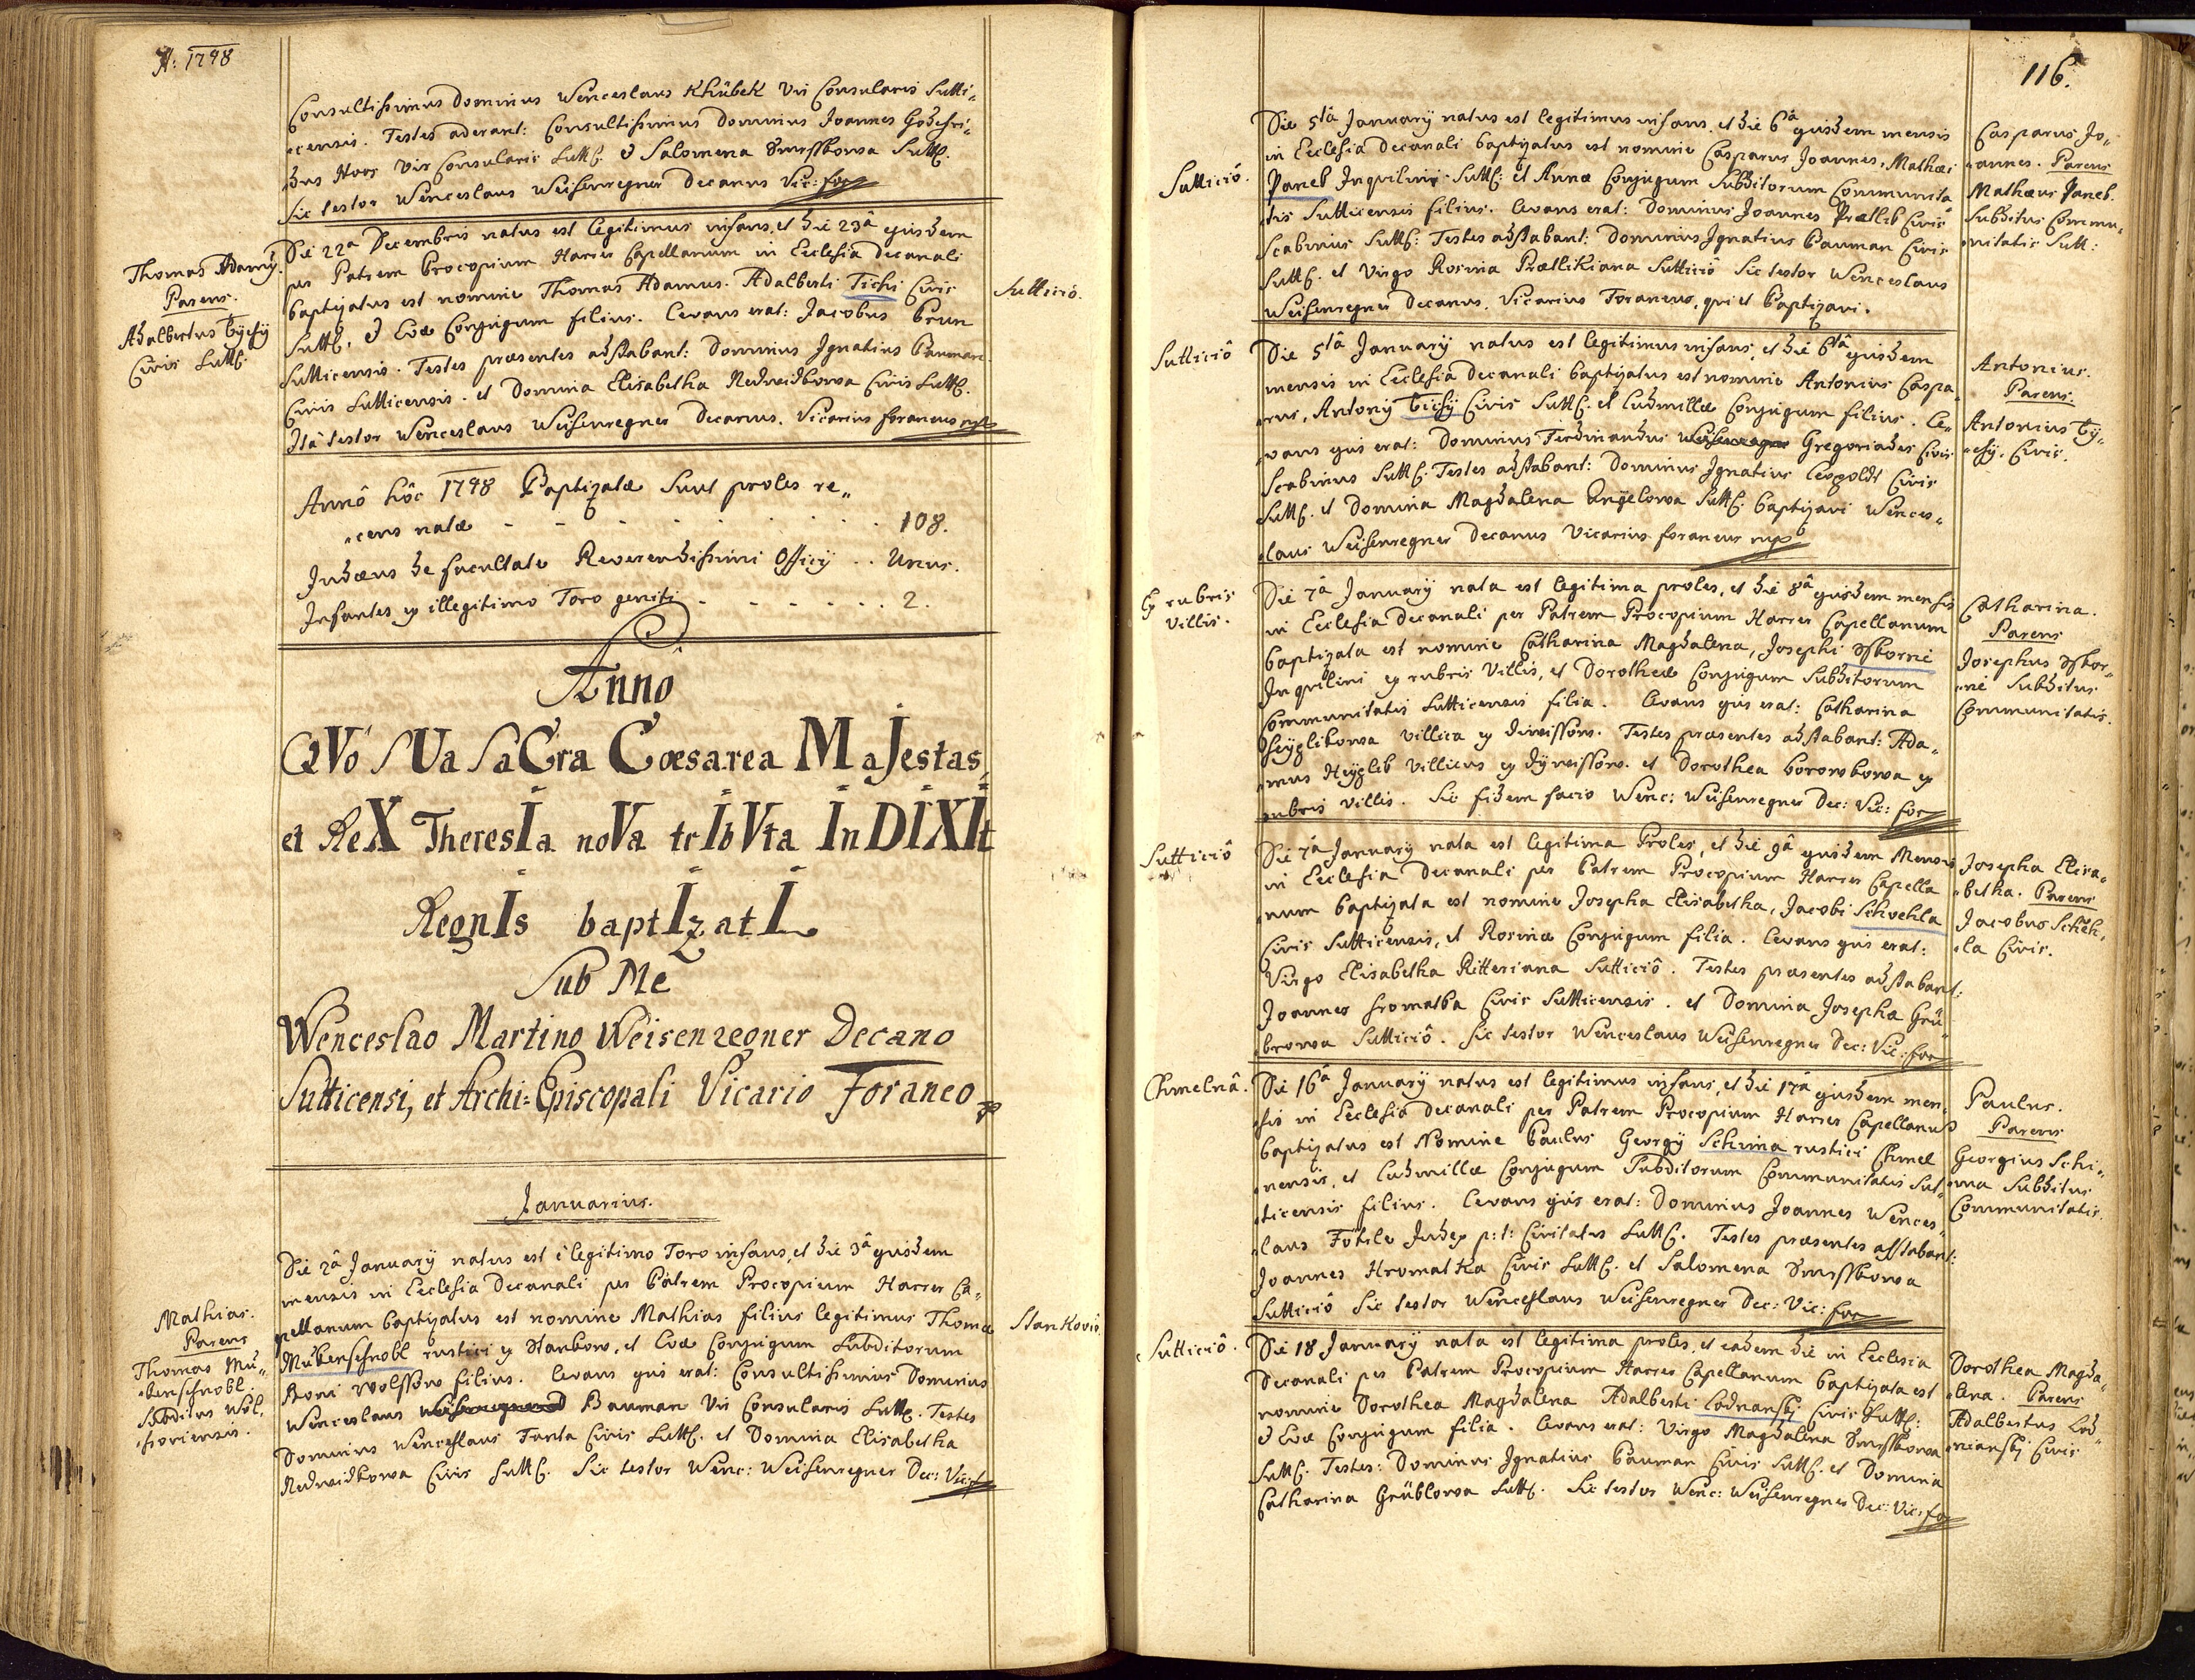 A: 1748
Consultissimus Dominus Wenceslaus Khübek Vir Consularis Sutti„
„censis. Testes aderant: Consultissimus Dominus Joannes Godefri„
„dus Voos Vir Consularis Sutt. & Salomena Smrsskowa Sutt.
Sic testor Wenceslaus Weisenregner Decanus Vic: for
Thomas Adamg.
Parens.
Adalbertus Tychÿ
Civis Sutt.
Die 22â Decembris natus est legitimus infans, et die 23â ejusdem
per Patrem Procopium Harrer Capellanum in Ecclesia Decanali
baptizatus est nomine Thomas Adamus. Adalberti Tichi Civis
Sutt. & Evæ Conjugum filius. Levans erat: Jacobus Brun
Sutticensis. Testes præsentes adstabant: Dominus Ignatius Bauman
Civis Sutticensis. et Domina Elisabetha Nedwidkowa Civis Sutt.
Ita testor Wenceslaus Weisenregner Decanus. Vicarius foraneus mp
Sutticiô.
Annô hôc 1748 Baptizatæ sunt proles re„
„cens natæ - - - - - 108.
Judæus de facultate Reverendissimi Officÿ . . Unus.
Infantes ex illegitimo Toro geniti - - - - - 2.
Annô
QVô sUa saCra Cæsarea MaJestas,
et ReX TheresIa noVa trIbVta InDIXIt
RegnIs baptIzatI
Sub Me
Wenceslao Martino Weisenregner Decano
Sutticensi, et Archi=Episcopali Vicario Foraneo
Januarius.
Mathias.
Parens
Thomas Mu„
„kenschnobl.
Subditus Wol„
„ssoviensis.
Die 2â Januarÿ natus est è legitimo Toro infans, et die 3â ejusdem
mensis in Ecclesia Decanali per Patrem Procopium Harrer Ca„
pellanum baptizatus est nomine Mathias filius legitimus Thomæ
Mukenschnobl rustici ex Stankow, et Evæ Conjugum Subditorum
Boni Wolssow filius. Levans ejus erat: Consultissimus Dominus
Wenceslaus Bauman Vir Consularis Sutt. Testes
Dominus Wenceslaus Tanta Civis Sutt. et Domina Elisabetha
Nedwidkowa Civis Sutt. Sic testor Wenc: Weisenregner Dec: Vic: f
Stankoviô.
116.
Sutticiô.
Die 5tâ Januarÿ natus est legitimus infans, et die 6â ejusdem mensis
in Ecclesia Decanali baptizatus est nomine Casparus Joannes, Mathæi
Panek Inquilini Sutt: et Annæ Conjugum Subditorum Communita
„tis Sutticensis filius. Levans erat: Dominus Joannes Prætlik Civis
Scabinus Sutt: Testes adstabant: Dominus Ignatius Bauman Civis
Sutt. et Virgo Rosina Prætlikiana Sutticiô Sic testor Wenceslaus
Weisenregner Decanus. Vicarius Foraneus, qui et baptizavi.
Casparus Jo„
„annes. Parens
Mathæus Panek.
Subditus Commu„
„nitatis Sutt:
Sutticiô
Die 5tâ Januarÿ natus est legitimus infans, et die 6tâ ejusdem
mensis in Ecclesia Decanali baptizatus est nomine Antonius Caspa„
„rus, Antonÿ Tichÿ Civis Sutt. et Ludmillæ Conjugum filius. Le„
„vans ejus erat: Dominus Ferdinandus Gregoriades Civis
Scabinus Sutt. Testes adstabant: Dominus Ignatius Leopoldt Civis
Sutt. et Domina Magdalena Engelowa Sutt. baptizavi Wences„
„laus Weisenregner Decanus Vicarius foraneus mp
Antonius.
Parens:
Antonius Tÿ„
„chÿ. Civis.
Ex rubris
villis.
Die 7â Januarÿ nata est legitima proles, et die 8â ejusdem mensis
in Ecclesia Decanali per Patrem Procopium Harrer Capellanum
baptizata est nomine Catharina Magdalena, Josephi Dskorne
Inquilini ex rubris Villis, et Dorotheæ Conjugum Subditorum
Communitatis Sutticensis filia. Levans ejus erat: Catharina
Heÿglikowa villica ex Diwissow. Testes præsentes adstabant: Ada„
„mus Heÿglik villicus ex Dÿwissow. et Dorothea borowkowa ex
rubris villis. Sic fidem facio Wenc: Weisenregner Dec: Vic: for
Catharina.
Parens
Josephus Dskor„
„ne Subditus
Communitatis.
Sutticiô
Die 7â Januarÿ nata est legitima Proles, et die 9â ejusdem Mensis
in Ecclesia Decanali per Patrem Procopium Harrer Capella
„num baptizata est nomine Josepha Elisabetha, Jacobi Schvehla
Civis Sutticensis, et Rosinæ Conjugum filia. Levans ejus erat:
Virgo Elisabetha Ritteriana Sutticiô. Testes præsentes adstabant:
Joannes Hromatka Civis Sutticensis. et Domina Josepha Grü„
„berowa Sutticiô. Sic testor Wenceslaus Weisenregner Dec: Vic: for
Josepha Elisa„
„betha. Parens
Jacobus Scheh„
„la Civis.
Chmelnâ.
Die 16â Januarÿ natus est legitimus infans, et die 17â ejusdem men„
„sis in Ecclesia Decanali per Patrem Procopium Harrer Capellanum
baptizatus est Nomine Paulus Georgÿ Schima rustici Chmel
„nensis, et Ludmillæ Conjugum Subditorum Communitatis Sut„
„ticensis filius. Levans ejus erat: Dominus Joannes Wences„
„laus Fotile Judex p: t: Civitatis Sutt. Testes præsentes asstabant:
Joannes Hromatka Civis Sutt. et Salomena Smrsskowa
Sutticiô Sic testor Wenceslaus Weisenregner Dec: Vic: for
Paulus.
Parens
Georgius Schi„
„ma Subditus
Communitatis.
Sutticiô.
Die 18 Januarÿ nata est legitima proles, et eadem die in Ecclesia
Decanali per Patrem Procopium Harrer Capellanum baptizata est
nomine Dorothea Magdalena Adalberti Lodnanskj Civis Sutt:
& Evæ Conjugum filia. Levans erat: Virgo Magdalena Smrsskowa
Sutt. Testes: Dominus Ignatius Bauman Civis Sutt. et Domina
Catharina Grüblowa Sutt. Sic testor Wenc: Weisenregner Dec: Vic: for
Dorothea Magda„
„lena. Parens
Adalbertus Lod„
„nianskj Civis